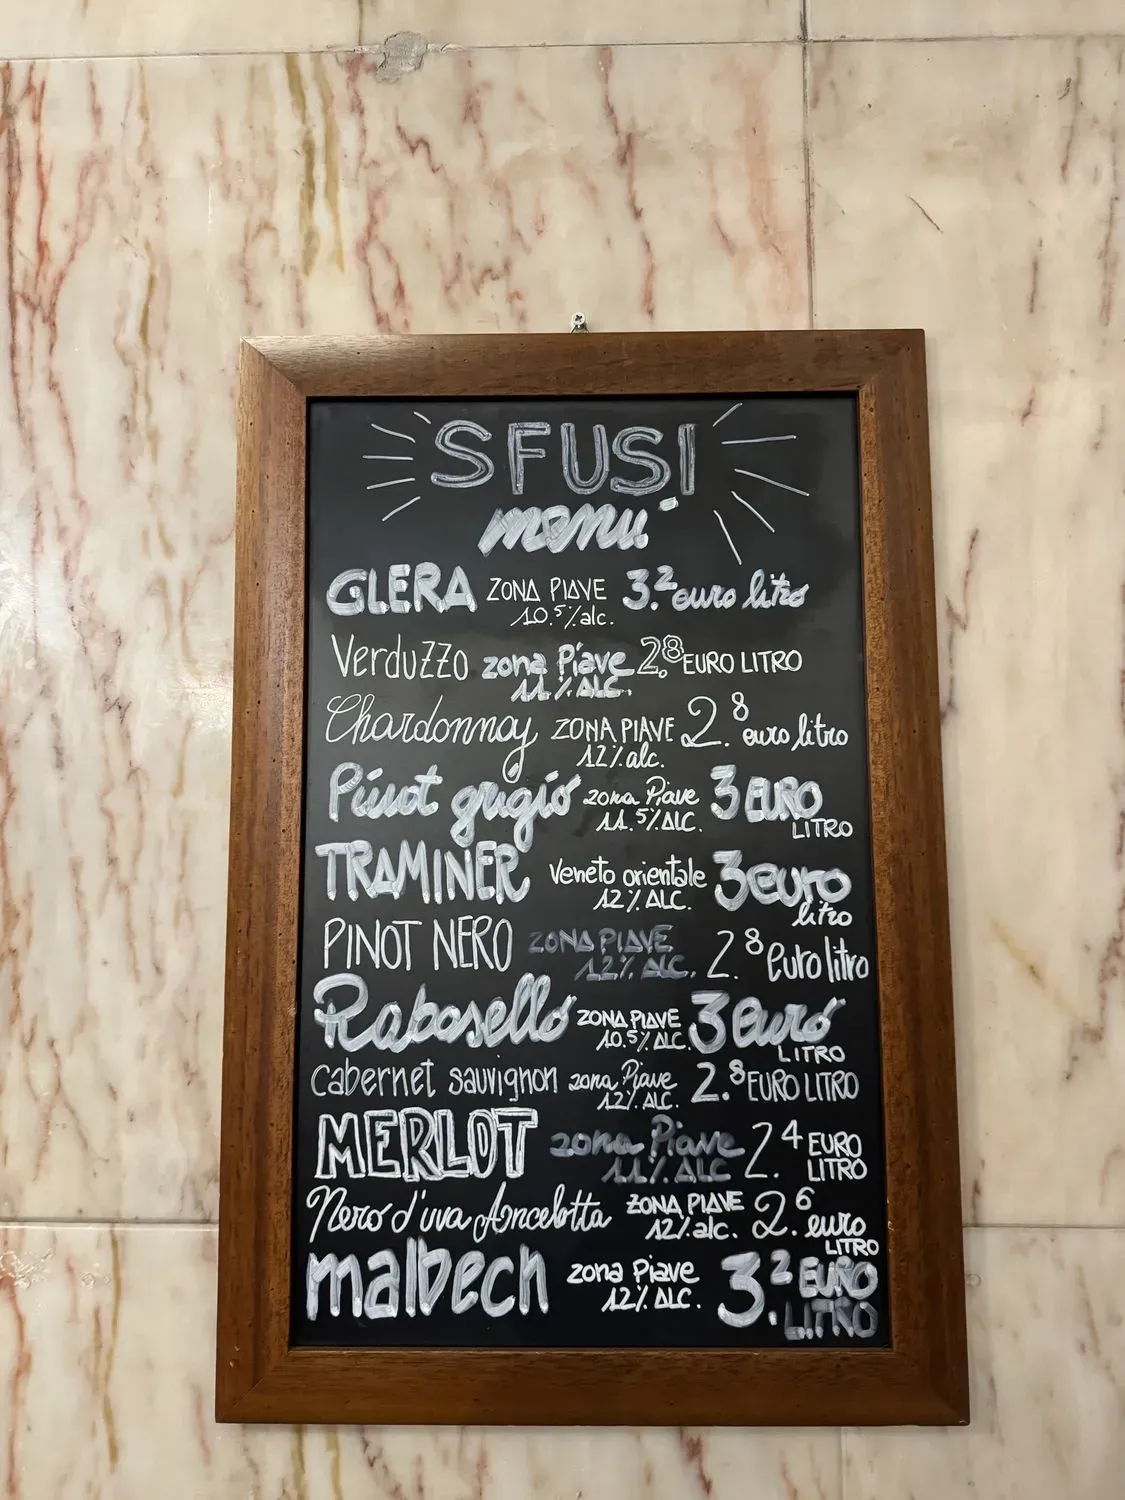 SFUSI
menu
GLERA ZONA PIAVE 3.2 euro litro
10.5% alc.
Verduzzo zona Piave 2.8 EURO LITRO
11% ALC.
Chardonnay ZONA PIAVE 2.8 euro litro
12% alc.
Pinot grigio zona Piave 3 EURO
11.5% ALC. LITRO
TRAMINER Veneto orientale 3 euro
12% ALC. litro
PINOT NERO ZONA PIAVE 2.8 euro litro
12% ALC.
Rabosello ZONA PIAVE 3 euro
10.5% ALC. LITRO
cabernet sauvignon zona Piave 2.8 EURO LITRO
12% ALC.
MERLOT zona Piave 2.4 EURO
11% ALC LITRO
Nero d'uva Ancelotta ZONA PIAVE 2.6 euro
12% alc. LITRO
malbech zona Piave 3.2 EURO
12% ALC. LITRO